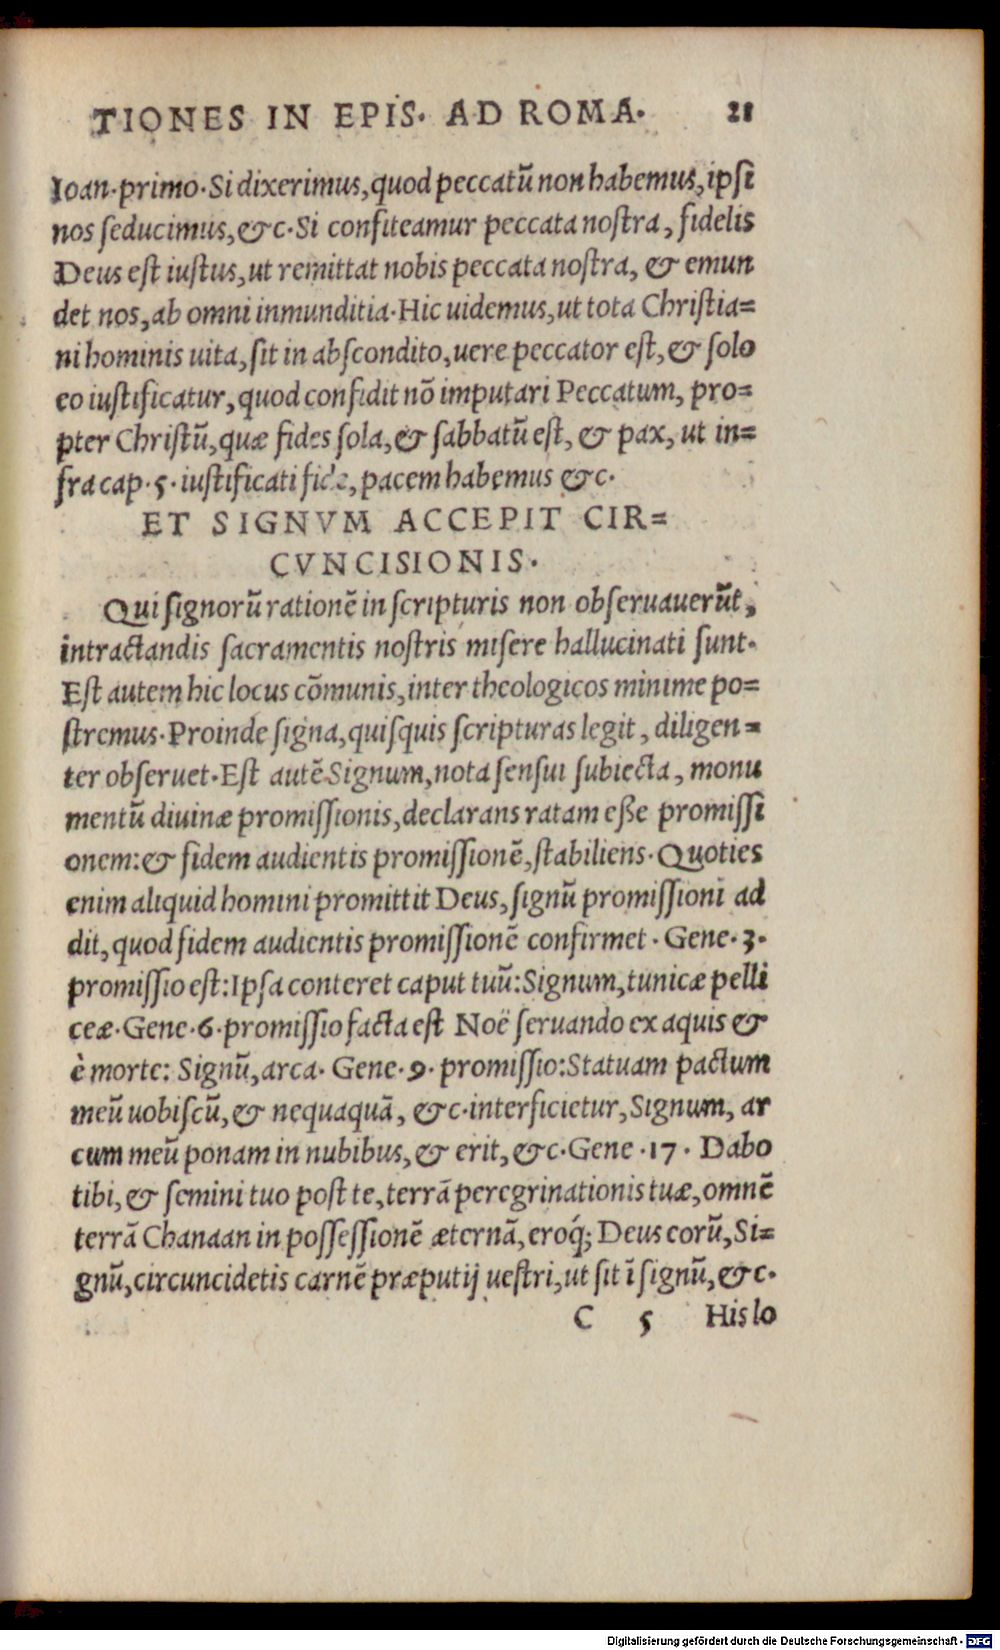 TIONES IN EPIS. AD ROMA. 21
Ioan. primo. Si dixerimus, quod peccatũ non habemus, ipsi
nos seducimus, &c. Si confiteamur peccata nostra, fidelis
Deus est iustus, ut remittat nobis peccata nostra, & emun
det nos, ab omni inmunditia. Hic uidemus, ut tota Christia=
ni hominis uita, sit in abscondito, uere peccator est, & solo
eo iustificatur, quod confidit nõ imputari Peccatum, pro=
pter Christũ, quæ fides sola, & sabbatũ est, & pax, ut in=
fra cap. 5. iustificati fide, pacem habemus &c.
ET SIGNVM ACCEPIT CIR=
CVNCISIONIS.
Qui signorũ rationẽ in scripturis non obseruauerũt,
intractandis sacramentis nostris misere hallucinati sunt.
Est autem hic locus cõmunis, inter theologicos minime po=
stremus. Proinde signa, quisquis scripturas legit, diligen=
ter obseruet. Est autẽ Signum, nota sensui subiecta, monu
mentũ diuinæ promissionis, declarans ratam eße promissi
onem: & fidem audientis promissionẽ, stabiliens. Quoties
enim aliquid homini promittit Deus, signũ promissioni ad
dit, quod fidem audientis promissionẽ confirmet. Gene. 3.
promissio est: Ipsa conteret caput tuũ: Signum, tunicæ pelli
ceæ. Gene. 6. promissio facta est Noë seruando ex aquis &
è morte: Signũ, arca. Gene. 9. promissio: Statuam pactum
meũ uobiscũ, & nequaquã, &c. interficietur, Signum, ar
cum meũ ponam in nubibus, & erit, &c. Gene. 17. Dabo
tibi, & semini tuo post te, terrã peregrinationis tuæ, omnẽ
terrã Chanaan in possessionẽ æternã, eroq́; Deus eorũ, Si=
gnũ, circuncidetis carnẽ præputij uestri, ut sit ĩ signũ, &c.
C 5 His lo
Digitalisierung gefördert durch die Deutsche Forschungsgemeinschaft - DFG